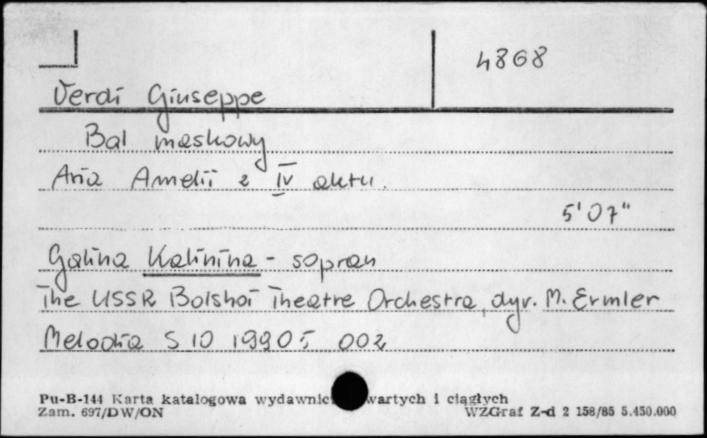 4868
Verdi Giuseppe
Bal maskowy
Aria Amelii z IV aktu.
5'07"
Galina Kalinina - sopran
The USSR Bolshoi Theatre Orchestra, dyr. M. Ermler
Melodia S 10 19905 002
Pu-B-144 Karta katalogowa wydawnic wartych i ciągłych
Zam. 697/DW/ON WZGraf Z-d 2 158/85 5.450.000